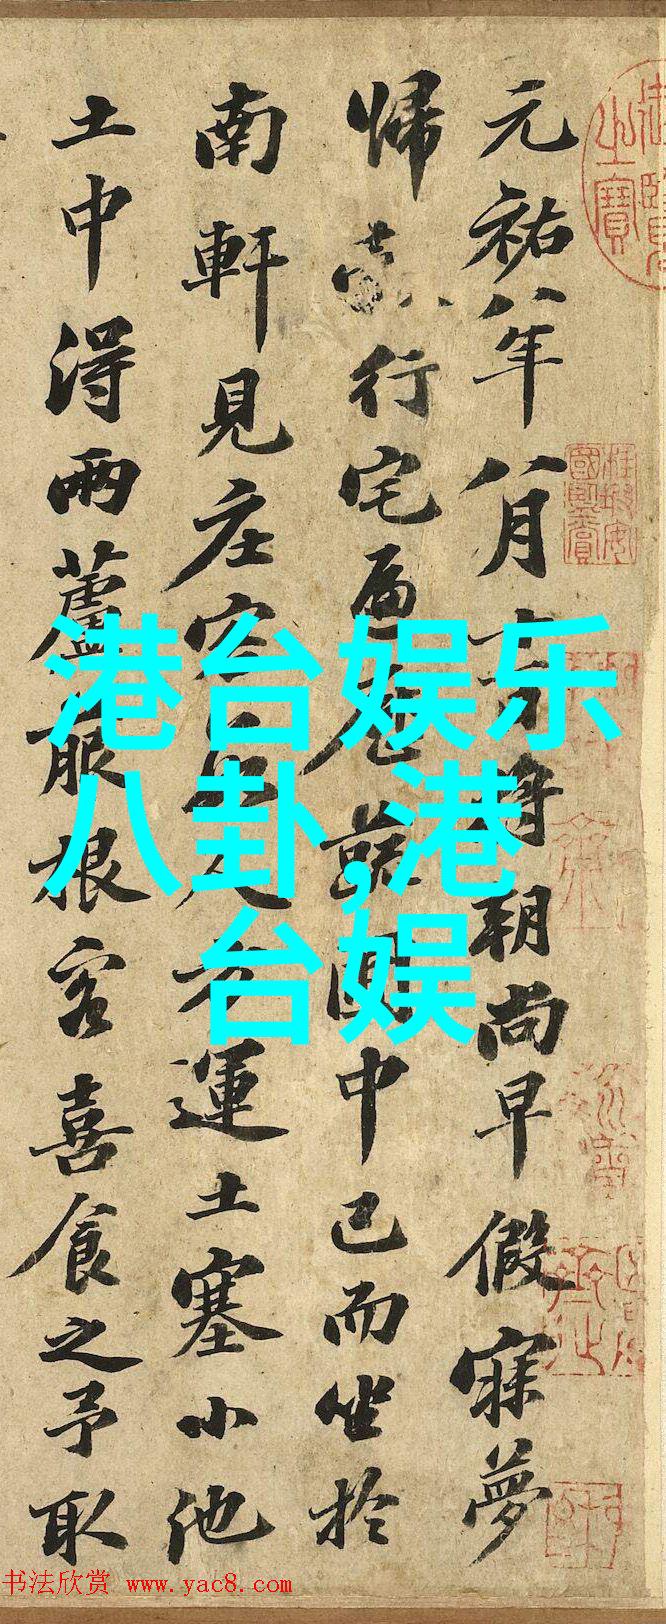 元祐八年八月十將朝尚早假寐夢
歸行宅遍蔬園中已而坐於
南軒見庄客人方運土塞小池
土中得兩蘆菔根客喜食之予取
港台娱乐
八卦,港
台娱
书法欣赏 www.yac8.com